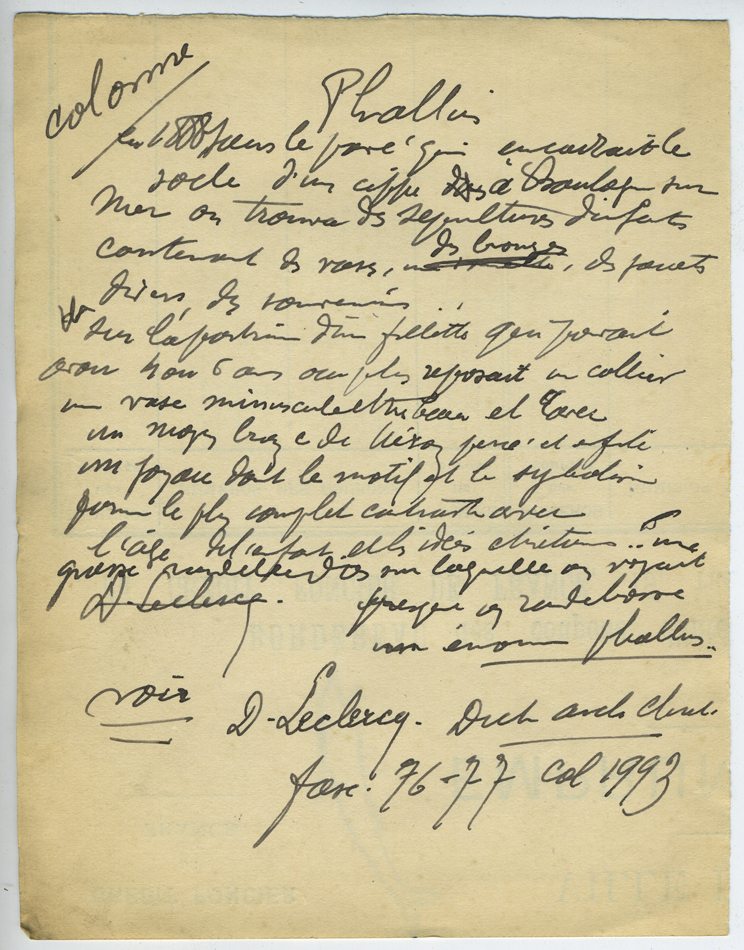 colonne
Phallus
en 1888 dans le pavé qui encadrait le
socle d'un cippe à Boulogne sur
Mer on trouva des sépultures d'enfants
contenant des vases, des bronzes, des jouets
divers, des souvenirs...
sur la poitrine d'une fillette qui pouvait
avoir 4 ou 5 ans au plus reposait un collier
un vase minuscule et avec
un moyen bronze de Néron percé et
un joyau dont le motif et le symbolisme
forme le plus complet contraste avec
l'âge de l'enfant et les idées chrétiennes.. "une
grosse rondelle d'os sur laquelle on voyait
D. Leclercq. presque en ronde bosse
un énorme phallus..
voir D. Leclercq. Dict. arch. chrét.
fasc: 76-77 col 1993